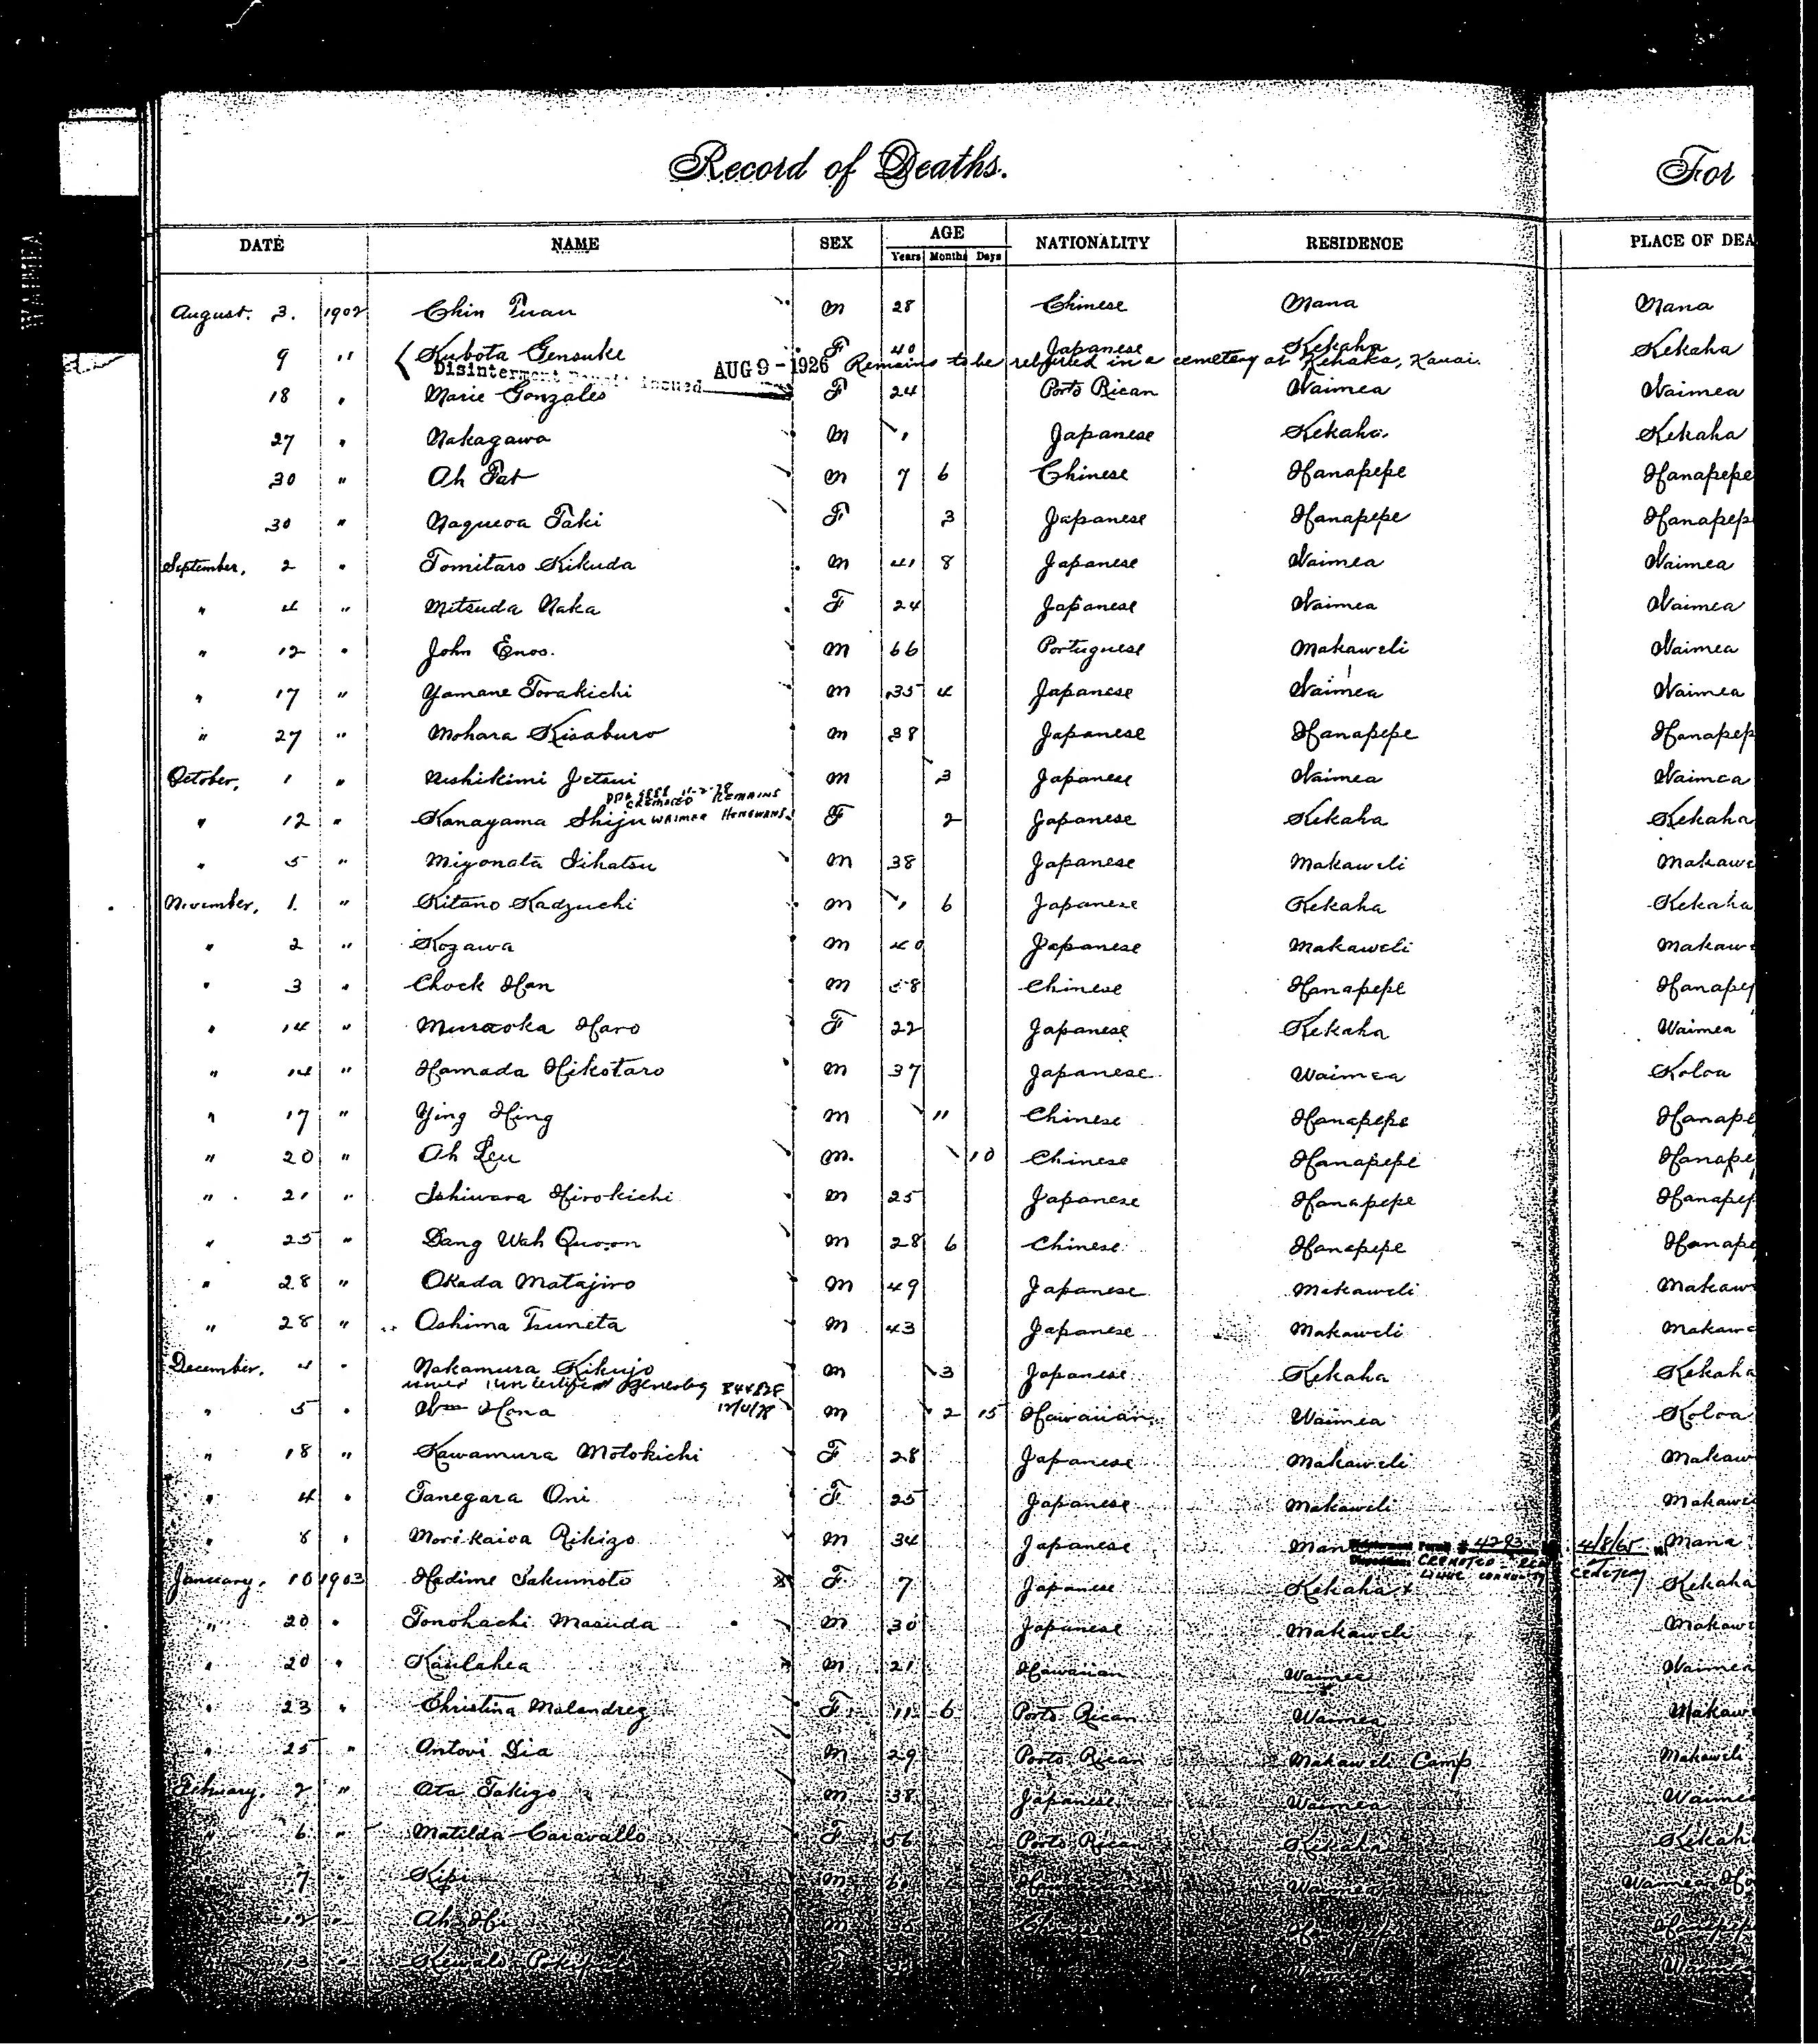 WAIMEA
Record of Deaths. For
DATE NAME SEX AGE NATIONALITY RESIDENCE PLACE OF DEA
Years Months Days
August. 3. 1902 Chin Puan M 28 Chinese Mana Mana
9 " Kubota Gensuke F 40 Japanese Kekaha Kekaha
Disinterment Permit issued AUG 9 - 1926 Remains to be reburied in a cemetery at Kekaha, Kauai.
18 " Marie Gonzales F 24 Porto Rican Waimea Waimea
27 " Nakagawa M 1 Japanese Kekaha. Kekaha
30 " Ah Fat M 7 6 Chinese Hanapepe Hanapepe
30 " Naguewa Taki F 3 Japanese Hanapepe Hanapep
September, 2 " Tomitaro Kikuda M 41 8 Japanese Waimea Waimea
" 4 " Mitsuda Naka F 24 Japanese Waimea Waimea
" 12 " John Enos. M 66 Portuguese Makaweli Waimea
" 17 " Yamane Torakichi M 35 4 Japanese Waimea Waimea
" 27 " Mohara Kisaburo M 38 Japanese Hanapepe Hanapep
October, 1 " Nishikimi Jetsui M 3 Japanese Waimea Waimea
CREMATED REMAINS
" 12 " Kanayama Shiju WAIMEA HONGWANJI F 2 Japanese Kekaha Kekaha
" 5 " Miyonata Iihatsu M 38 Japanese Makaweli Makawe
November, 1. " Kitano Kadzuchi M 1 6 Japanese Kekaha Kekaha
" 2 " Kozawa M 40 Japanese Makaweli Makaw
" 3 " Chock Han M 58 Chinese Hanapepe Hanapep
" 14 " Muraoka Haro F 22 Japanese Kekaha Waimea
" 14 " Hamada Hikotaro M 37 Japanese Waimea Koloa
" 17 " Ying Hing M 11 Chinese Hanapepe Hanape
" 20 " Ah Leu M. 10 Chinese Hanapepe Hanape
" 21 " Ishiwara Hirokichi M 25 Japanese Hanapepe Hanapep
" 25 " Dang Wah Quoon M 28 6 Chinese Hanapepe Hanape
" 28 " Okada Matajiro M 49 Japanese Makaweli Makaw
" 28 " Oshima Tsuneta M 43 Japanese Makaweli Makawe
December, 4 " Nakamura Kikujo M 3 Japanese Kekaha Kekaha
" 5 " Wm Hana 12/11/78 M 2 15 Hawaiian Waimea Koloa
" 18 " Kawamura Motokichi F 28 Japanese Makaweli Makaw
" 4 " Tanegara Oni F 25 Japanese Makaweli Makawe
" 8 " Morikawa Rikizo M 34 Japanese Mana # 4293 4/8/65 Mana
CREMATED
January, 10 1903 Hadime Sakumoto F 7 Japanese Kekaha Kekaha
" 20 " Tonohachi Masuda M 30 Japanese Makaweli Makawe
" 20 " Kaulahea M 21 Hawaiian Waimea Waimea
" 23 " Christina Malendrez F 11 6 Porto Rican Waimea Makaw
" 25 " Antovi Dia M 29 Porto Rican Makaweli Camp Makaweli
February, 2 " Ota Takizo M 38 Japanese Waimea Waimea
" 6 " Matilda Caravallo F 56 Porto Rican Kekaha Kekah
" 7 " Kipi M Hawaiian Waimea Waimea
12 " Ah Hi M Chinese Hanapepe Hanapepe
13 " Kewalo